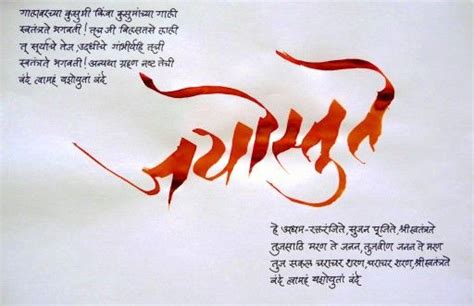 गालावरच्या कुसुमी किंवा कुसुमांच्या गाली
स्वतंत्रते भगवती! तूच जी विलसतसे लाली
तू सूर्याचे तेज, उदधीचे गांभीर्यहि तूची
स्वतंत्रते भगवती! अन्यथा ग्रहण नष्ट तेची
वंदे त्वामहं यशोयुतां वंदे
जयोस्तुते
हे अधम-रक्तरंजिते, सुजन पूजिते, श्रीस्वतंत्रते
तुजसाठि मरण ते जनन, तुजवीण जनन ते मरण
तुज सकल चराचर शरण, चराचर शरण, श्रीस्वतंत्रते
वंदे त्वामहं यशोयुतां वंदे